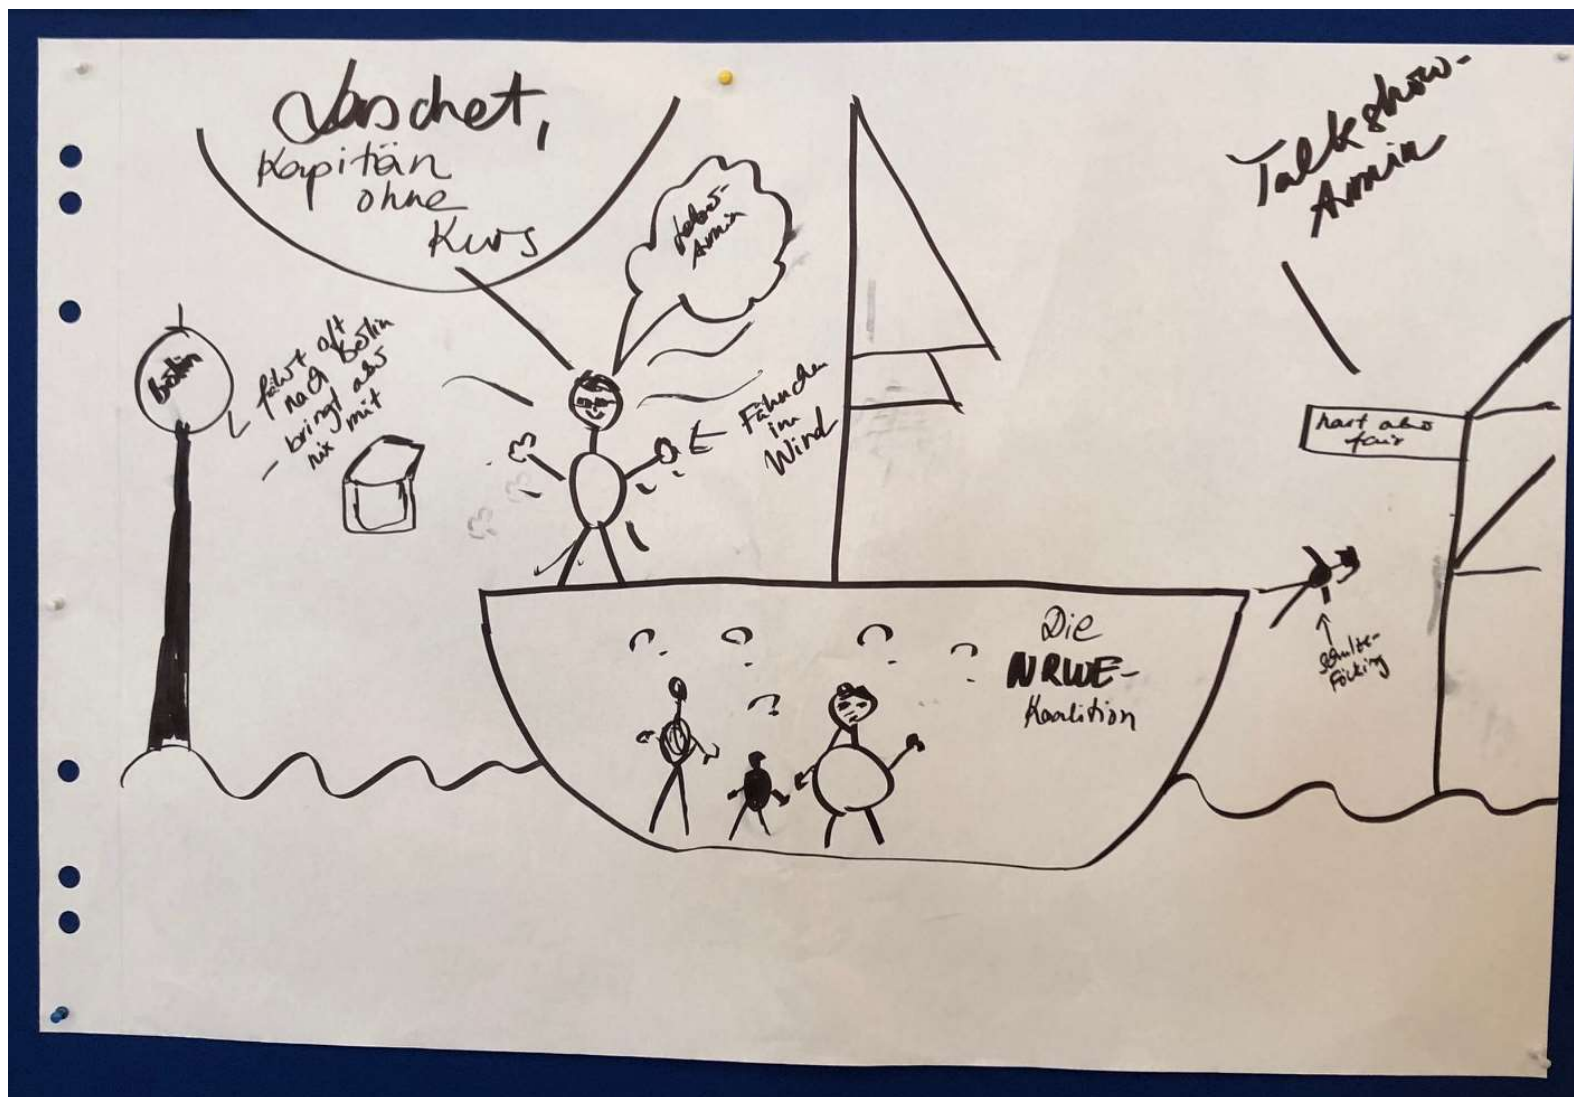 Laschet,
Kapitän
ohne
Kurs
Armin
Talkshow-
Armin
Berlin
fährt oft
nach Berlin
bringt aber
nix mit
Fähnchen
im
Wind
hart aber
fair
Die
NRWE-
Koalition
Schulze-
Föcking